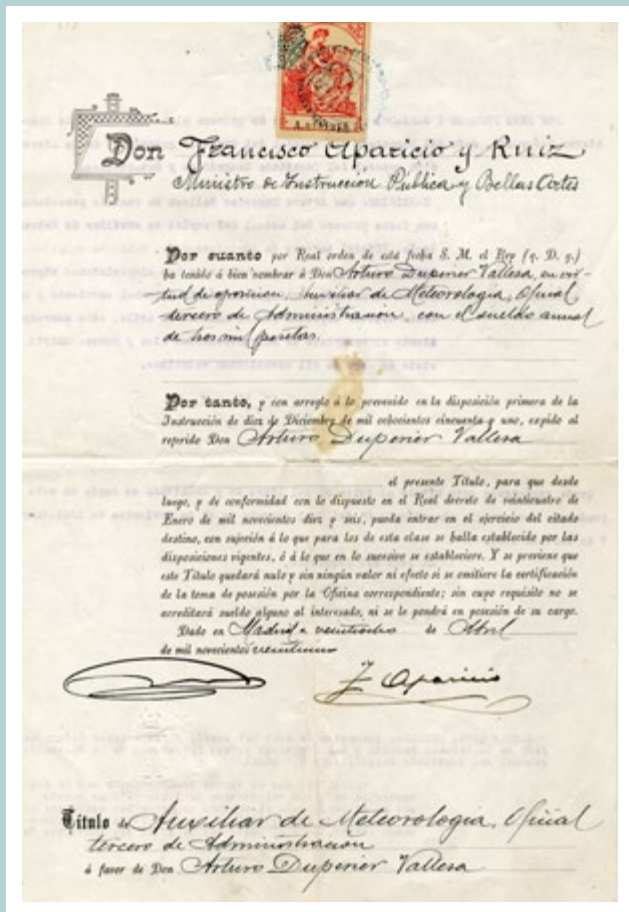 Don Francisco Aparicio y Ruiz
Ministro de Instrucción Pública y Bellas Artes
Por cuanto por Real orden de esta fecha S. M. el Rey (q. D. g.)
ha tenido á bien nombrar á Don Arturo Duperier Vallesa, en vir-
tud de oposición, Auxiliar de Meteorología, Oficial
tercero de Administración, con el sueldo anual
de tres mil pesetas.
Por tanto, y con arreglo á lo prevenido en la disposición primera de la
Instrucción de diez de Diciembre de mil ochocientos cincuenta y uno, expido al
referido Don Arturo Duperier Vallesa
el presente Título, para que desde
luego, y de conformidad con lo dispuesto en el Real decreto de veinticuatro de
Enero de mil novecientos diez y seis, pueda entrar en el ejercicio del citado
destino, con sujeción á lo que para los de esta clase se halla establecido por las
disposiciones vigentes, ó á lo que en lo sucesivo se estableciere. Y se previene que
este Título quedará nulo y sin ningún valor ni efecto si se omitiere la certificación
de la toma de posesión por la Oficina correspondiente; sin cuyo requisito no se
acreditará sueldo alguno al interesado, ni se le pondrá en posesión de su cargo.
Dado en Madrid a veintiocho de Abril
de mil novecientos veintiuno
F Aparicio
Título de Auxiliar de Meteorología, Oficial
tercero de Administración
á favor de Don Arturo Duperier Vallesa